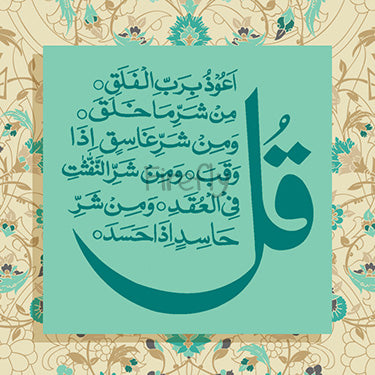 قُل
اَعُوْذُ بِرَبِّ الْفَلَقِ ○
مِنْ شَرِّ مَا خَلَقَ ○
وَمِنْ شَرِّ غَاسِقٍ اِذَا
وَقَبَ ○ وَمِنْ شَرِّ النَّفّٰثٰتِ
فِى الْعُقَدِ ○ وَمِنْ شَرِّ
حَاسِدٍ اِذَا حَسَدَ ○
Firefly